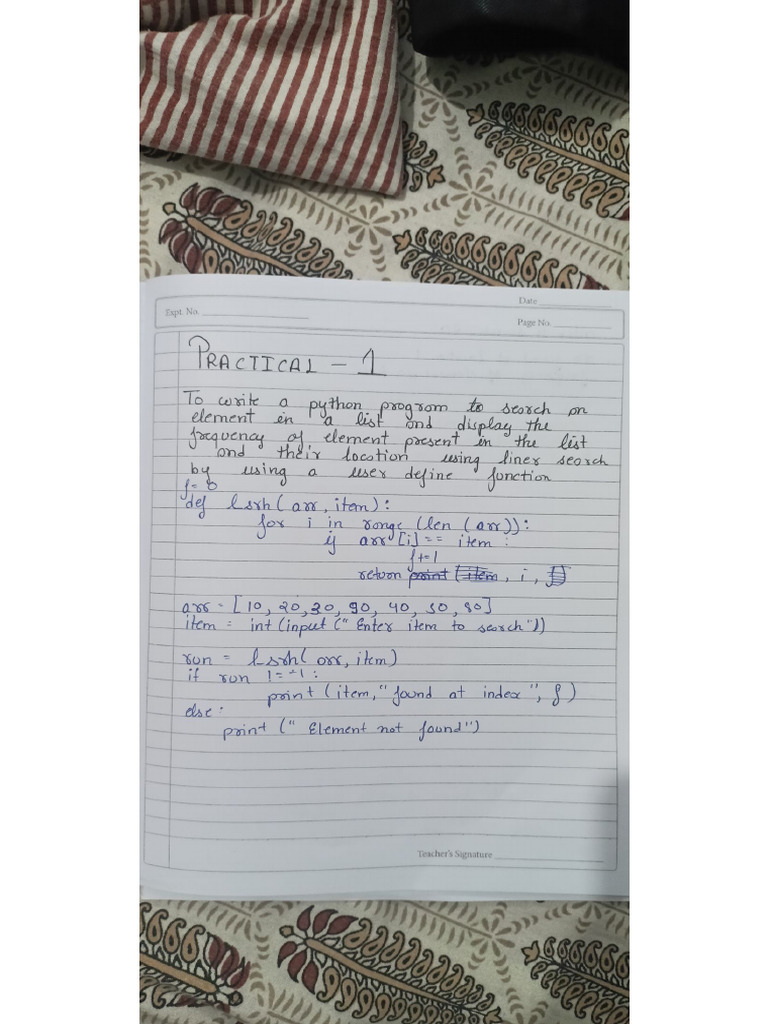 Date
Expt. No.
Page No.
PRACTICAL - 1
To write a python program to search an
element in a list and display the
frequency of element present in the list
and their location using liner search
by using a user define function
f = 0
def lsrh( arr, item):
for i in range (len (arr)):
if arr [i] == item :
f+=1
return print (item, i,
arr = [10, 20, 30, 90, 40, 50, 80]
item = int (input (" Enter item to search"))
run = lsrh( arr, item)
if run != -1 :
print (item, "found at index", f )
else :
print (" Element not found")
Teacher's Signature